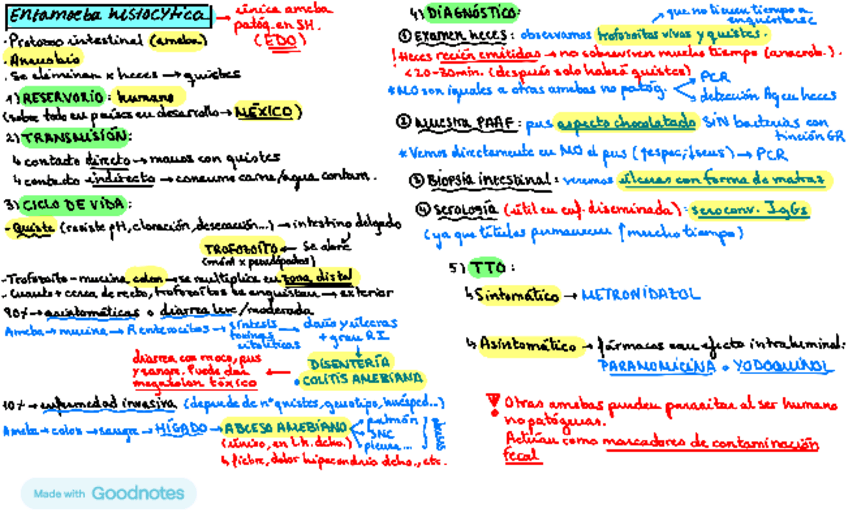 Entamoeba histolytica → única ameba
patóg. en SH.
(EDO)
· Protozoo intestinal (ameba)
· Anaerobio
· Se eliminan x heces → quistes
1) RESERVORIO: humano
(sobre todo en países en desarrollo → MÉXICO)
2) TRANSMISIÓN:
↳ contacto directo → manos con quistes
↳ contacto indirecto → consumo carne/agua contam.
3) CICLO DE VIDA:
- Quiste (resiste pH, cloración, desecación...) → intestino delgado
TROFOZOÍTO ← se abre
(móvil x pseudópodos)
- Trofozoíto - mucina colon → se multiplica en zona distal
- Cuando + cerca de recto, trofozoítos se enquistan → exterior
90% → asintomáticas o diarrea leve/moderada
Ameba → mucina → R enterocitos → síntesis toxinas citolíticas → daño y úlceras
+ gran RI
diarrea con moco, pus
y sangre. Puede dar
megacolon tóxico
DISENTERÍA
· COLITIS AMEBIANA
10% → enfermedad invasiva (depende de nº quistes, genotipo, huésped...)
Ameba → colon → sangre → HÍGADO → ABCESO AMEBIANO
pulmón
SNC
pleura...
(único, en l.h. dcho.)
↳ fiebre, dolor hipocondrio dcho., etc.
4) DIAGNÓSTICO:
→ que no tienen tiempo a
enquistarse
① EXAMEN HECES: observamos trofozoítos vivos y quistes.
! Heces recién emitidas → no sobreviven mucho tiempo (anaerob.).
< 20-30min. (después solo habrá quistes)
* MO son iguales a otras amebas no patóg.
PCR
detección Ag en heces
② MUESTRA PAAF: pus aspecto chocolatado SIN bacterias con
tinción GR
* Vemos directamente en MO el pus (↑espec, ↓sens) → PCR
③ BIOPSIA INTESTINAL: veremos úlceras con forma de matraz
④ SEROLOGÍA (útil en enf. diseminada): seroconv. IgGs
(ya que títulos permanecen ↑ mucho tiempo)
5) TTO:
↳ Sintomático → METRONIDAZOL
↳ Asintomático → fármacos con efecto intraluminal:
PARAMOMICINA o YODOQUINOL
! Otras amebas pueden parasitar al ser humano
no patógenas.
Actúan como marcadores de contaminación
fecal
Made with Goodnotes